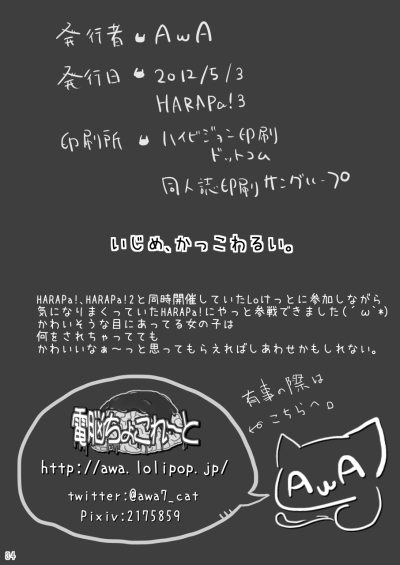 発行者 AwA
発行日 2012/5/3
HARAPa!3
印刷所 ハイビジョン印刷
ドットコム
同人誌印刷サングループ
いじめ、かっこわるい。
HARAPa!、HARAPa!2と同時開催していたLoけっとに参加しながら
気になりまくっていたHARAPa!にやっと参戦できました(´ω`*)
かわいそうな目にあってる女の子は
何をされちゃってても
かわいいなぁ〜っと思ってもらえればしあわせかもしれない。
有事の際は
こちらへ。
電脳ちょこれーと
http://awa.lolipop.jp/
twitter:@awa7_cat
Pixiv:2175859
AwA
34